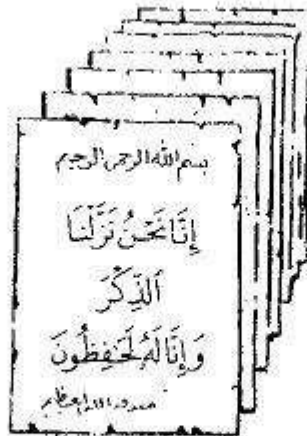 بسم الله الرحمن الرحيم
إِنَّا نَحْنُ نَزَّلْنَا
الذِّكْرَ
وَإِنَّا لَهُ لَحَٰفِظُونَ
صدق الله العظيم